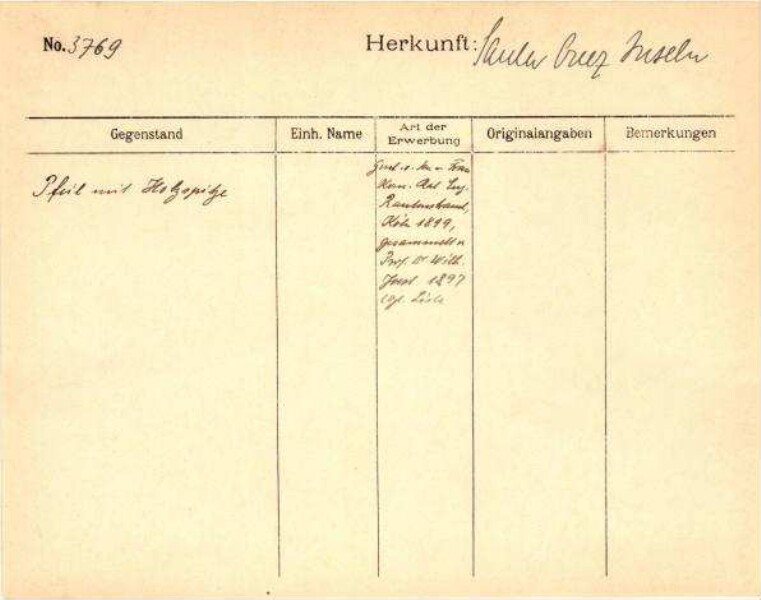 No. 3769
Herkunft: Santa Cruz Inseln
Gegenstand
Einh. Name
Art der
Erwerbung
Originalangaben
Bemerkungen
Pfeil mit Holzspitze
Gesch. v. Frau
Kom. Rat Eug.
Rautenstrauch,
Köln 1899,
gesammelt v.
Prof. Dr Wilh.
Joest 1897
vgl. Liste